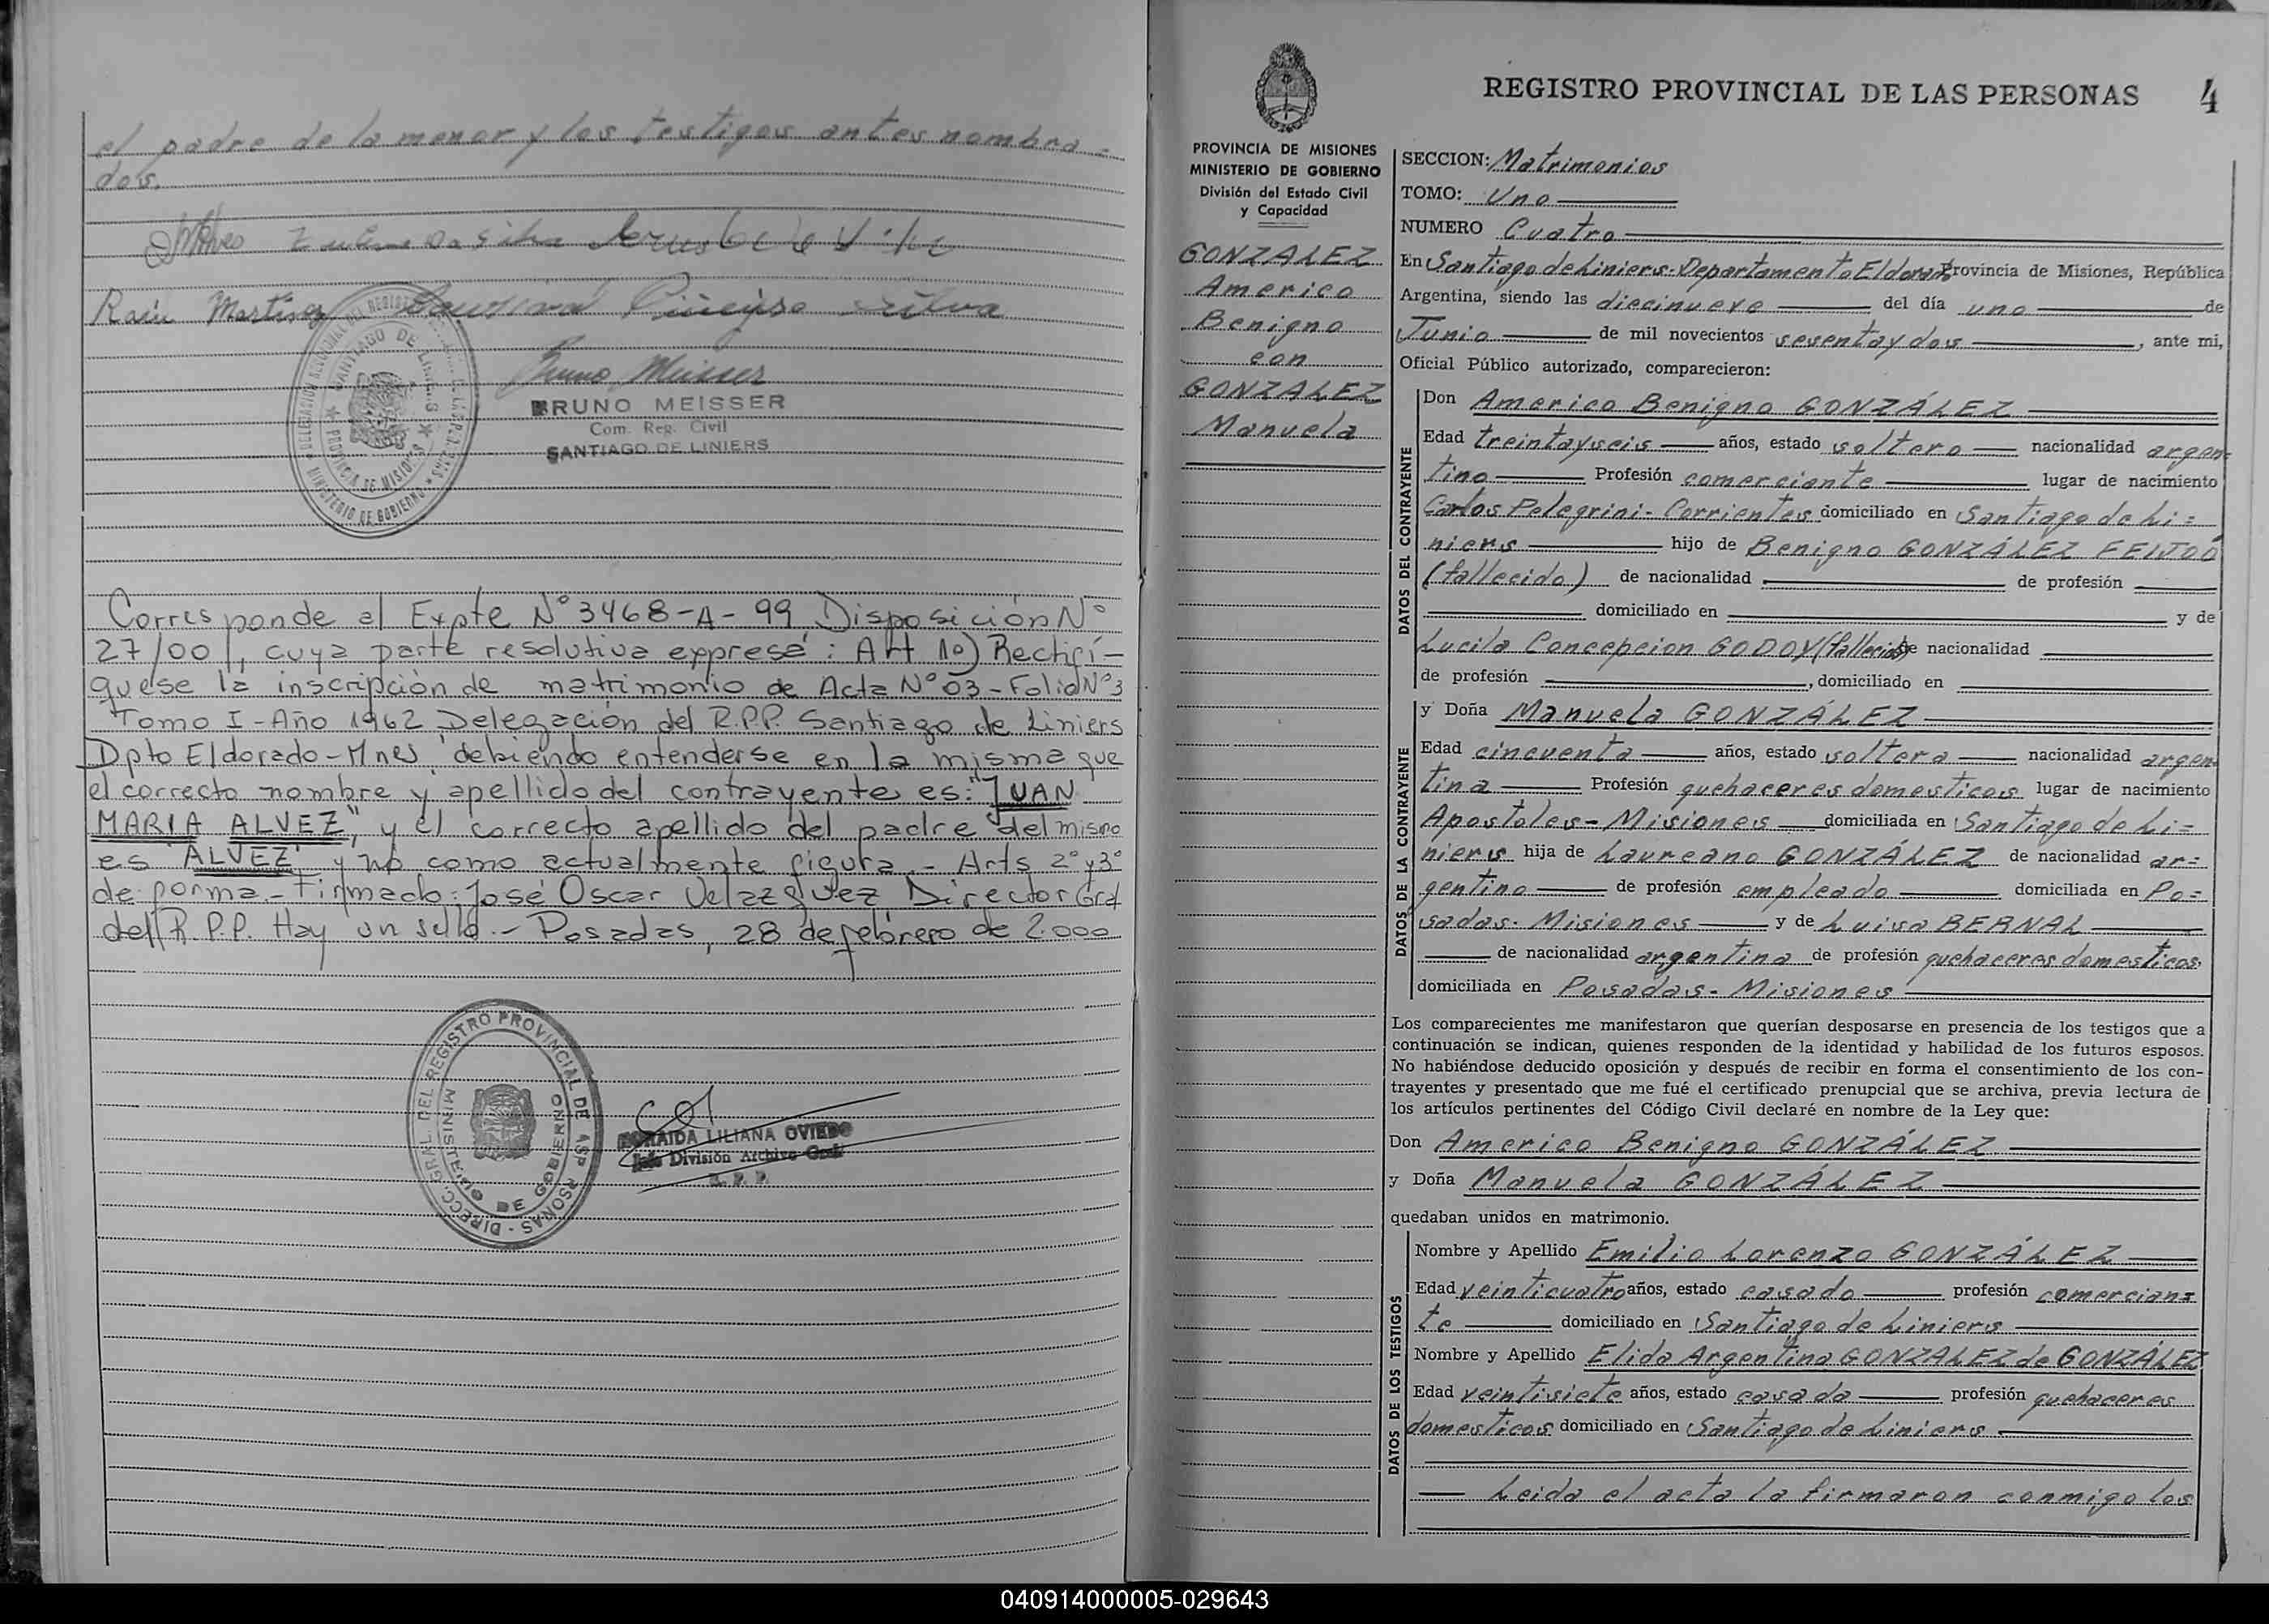 el padre de la menor y los testigos antes nombra-
dos.
Raúl Martinez
Bruno Meisser
BRUNO MEISSER
Com. Reg. Civil
SANTIAGO DE LINIERS
SANTIAGO DE LINIERS
PROVINCIA DE MISIONES
MINISTERIO DE GOBIERNO
Corresponde al Expte N° 3468-A-99 Disposición N°
27/00, cuya parte resolutiva expresa: Art 1o) Rectifí-
quese la inscripción de matrimonio de Acta N° 03-Folio N° 3
Tomo I-Año 1962 Delegación del R.P.P. Santiago de Liniers
Dpto Eldorado-Mnes, debiendo entenderse en la misma que
el correcto nombre y apellido del contrayente es: "JUAN
MARIA ALVEZ", y el correcto apellido del padre del mismo
es "ALVEZ" y no como actualmente figura.- Arts 2° y 3°
de forma.- Firmado: José Oscar Velazquez Director Gral
del R.P.P. Hay un sello.- Posadas, 28 de febrero de 2.000
DIRECC. GRAL. DEL REGISTRO PROVINCIAL DE
MINISTERIO DE GOBIERNO
LILIANA OVIEDO
Jefe División Archivo Gral
R. P. P.
REGISTRO PROVINCIAL DE LAS PERSONAS 4
PROVINCIA DE MISIONES
MINISTERIO DE GOBIERNO
División del Estado Civil
y Capacidad
GONZALEZ
Americo
Benigno
con
GONZALEZ
Manuela
SECCION: Matrimonios
TOMO: Uno
NUMERO Cuatro
En Santiago de Liniers-Departamento Eldorado Provincia de Misiones, República
Argentina, siendo las diecinueve del día uno de
Junio de mil novecientos sesenta y dos, ante mi,
Oficial Público autorizado, comparecieron:
DATOS DEL CONTRAYENTE
Don Americo Benigno GONZÁLEZ
Edad treinta y seis años, estado soltero nacionalidad argen-
tino Profesión comerciante lugar de nacimiento
Carlos Pelegrini-Corrientes domiciliado en Santiago de Li=
niers hijo de Benigno GONZÁLEZ FEIJOÓ
(fallecido) de nacionalidad de profesión
domiciliado en y de
Lucila Concepcion GODOY (fallecida) de nacionalidad
de profesión , domiciliado en
DATOS DE LA CONTRAYENTE
y Doña Manuela GONZÁLEZ
Edad cincuenta años, estado soltera nacionalidad argen
tina Profesión quehaceres domesticos lugar de nacimiento
Apostoles-Misiones domiciliada en Santiago de Li=
niers hija de Laureano GONZÁLEZ de nacionalidad ar=
gentino de profesión empleado domiciliada en Po=
sadas-Misiones y de Luisa BERNAL
de nacionalidad argentina de profesión quehaceres domesticos,
domiciliada en Posadas-Misiones
Los comparecientes me manifestaron que querían desposarse en presencia de los testigos que a
continuación se indican, quienes responden de la identidad y habilidad de los futuros esposos.
No habiéndose deducido oposición y después de recibir en forma el consentimiento de los con-
trayentes y presentado que me fué el certificado prenupcial que se archiva, previa lectura de
los artículos pertinentes del Código Civil declaré en nombre de la Ley que:
Don Americo Benigno GONZÁLEZ
y Doña Manuela GONZÁLEZ
quedaban unidos en matrimonio.
DATOS DE LOS TESTIGOS
Nombre y Apellido Emilio Lorenzo GONZÁLEZ
Edad veinticuatro años, estado casado profesión comercian=
te domiciliado en Santiago de Liniers
Nombre y Apellido Elida Argentina GONZALEZ de GONZÁLEZ
Edad veintisiete años, estado casada profesión quehaceres
domesticos domiciliado en Santiago de Liniers
Leida el acta la firmaron conmigo los
040914000005-029643